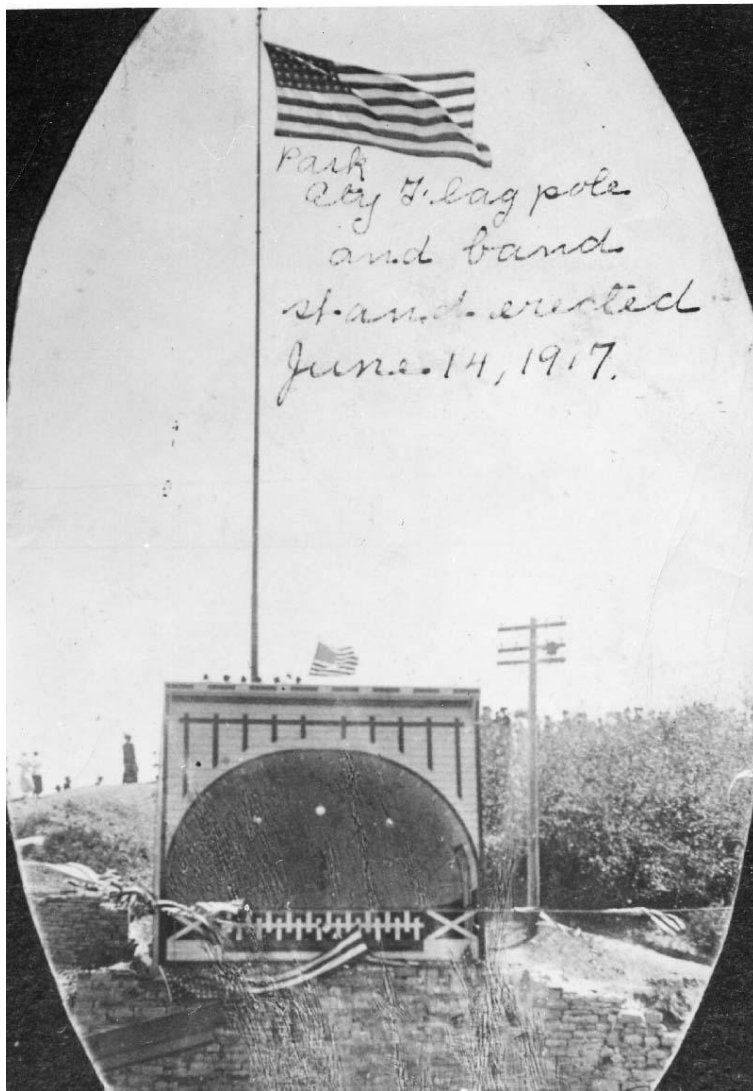 Park
City Flag pole
and band
stand erected
June 14, 1917.